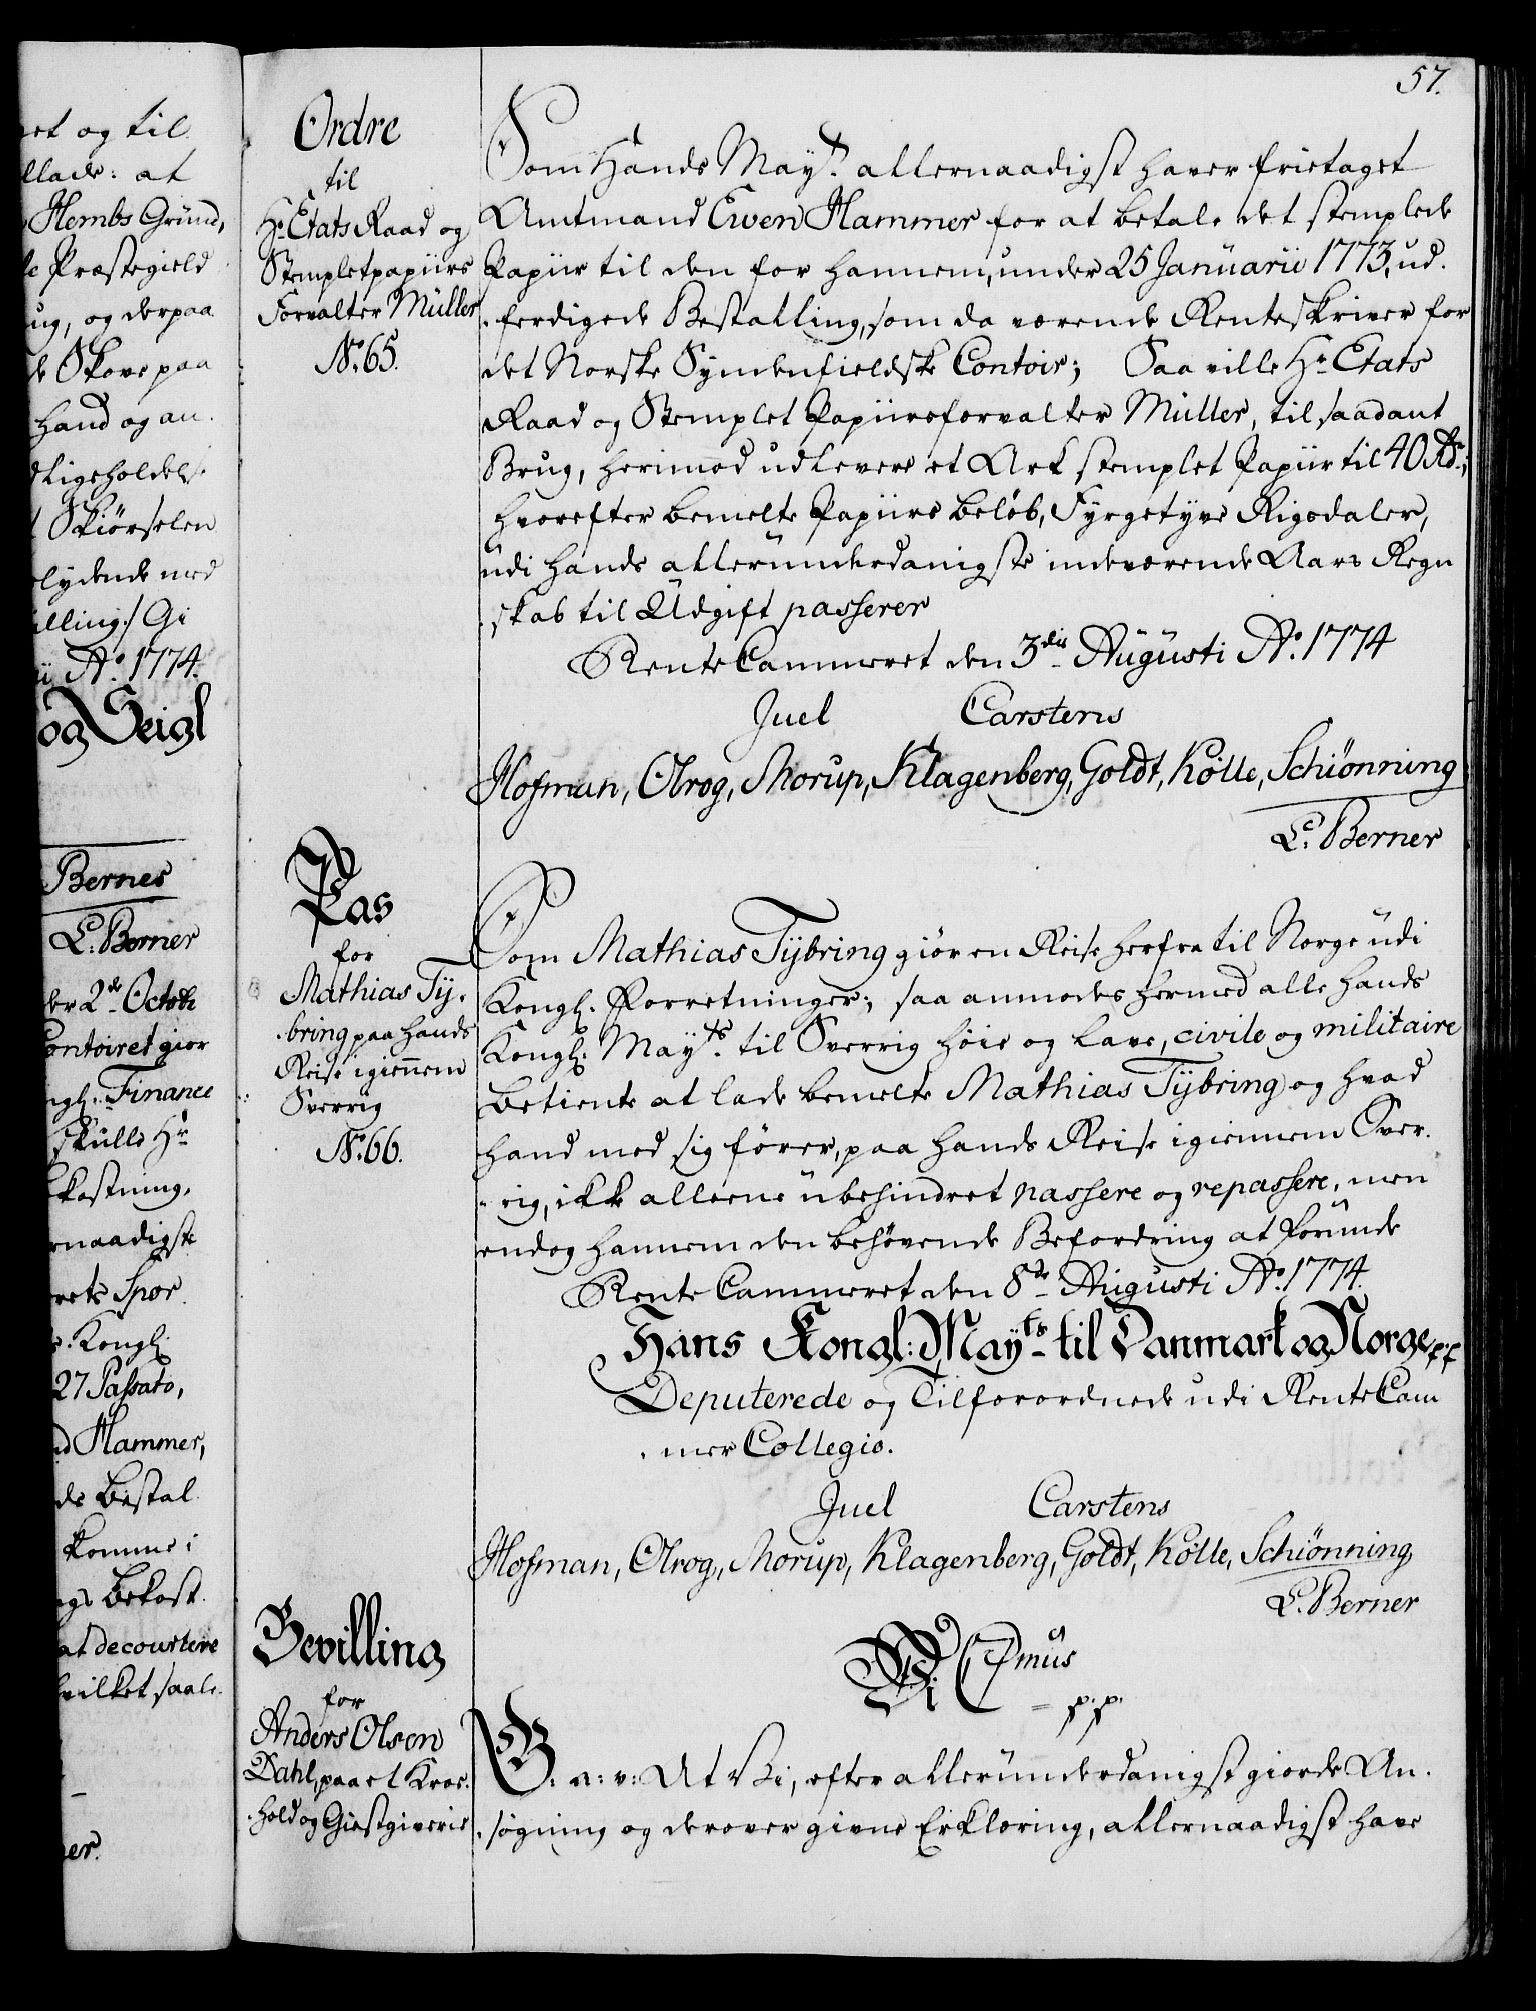 et og til
llade: at
Hembs Gründ,
le Præstegield
ug, og derpaa
de Skove paa
hand og an
dligeholdels
t Skiørselen
elydende med
illing:/ Gi
ii Aº. 1774.
og Seigl
Bernes
L: Berner
der 2de Octobr
Contoiret giør
ngl: Finance
skulle Hr
kostning,
rnaadigste
rets Spor
s. Kongl:
27 Passato,
d Hammer,
de Bestal
komme i
ngs Bekost
at decourtere
hvilket saale
er.
57.
Ordre
til
Hr. Etats Raad og
Stempletpapiirs
Forvalter Müller
No. 65.
Som Hands Mayt. allernaadigst haver frietaget
Amtmand Ewen Hammer for at betale det stemplede
Papiir til den for hannem, under 25 Januarii 1773, ud.
ferdigede Bestalling, som da værende Renteskriver for
det Norske Syndenfieldske Contoir; Saa ville Hr. Etats
Raad og Stemplet Papiirsforvalter Müller, til saadant
Brug, herimod udlevere et Ark stemplet Papiir til 40 Rdr.;
hvorefter bemelte Papiirs Beløb, Fyrgetyve Rigsdaler,
udi Hands allerunderdanigste indeværende Aars Regn
skab til Udgift passerer
RenteCammeret den 3die Augusti Aº. 1774
Juel Carstens
Hofman, Olrog, Morup, Klagenberg, Goldt, Kölle, Schiønning
L: Berner
Pas
for
Mathias Ty.
bring paa Hands
Reise igiennem
Sverrig
No. 66.
Som Mathias Tÿbring giør en Reise herfra til Norge udi
Kongl. Forretninger; saa anmodes hermed alle Hands
Kongl. Mayts. til Sverrig høie og lave, civile og militaire
Betiente at lade bemelte Mathias Tÿbring og hvad
hand med sig fører, paa Hands Reise igiennem Sver.
rig, ikke alleene ubehindret passere og repassere, men
endog hannem den behøvende Befordring at forunde
Rente Cammeret den 8de Augusti Aº. 1774.
Hans Kongl: Mayts til Danmark og Norge pp
Deputerede og Tilforordnede udi RenteCam
mer Collegio.
Juel Carstens
Hofman, Olrog, Morup, Klagenberg, Goldt, Kölle, Schiønning
L: Berner
Bevilling
for
Anders Olsen
Dahl, paa et Kroe.
hold og Giestgiverie
Vi C 7mus
p. p.
G: a: v: At Vi, efter allerunderdanigst giorde An.
søgning og derover givne Erklæring, allernaadigst have